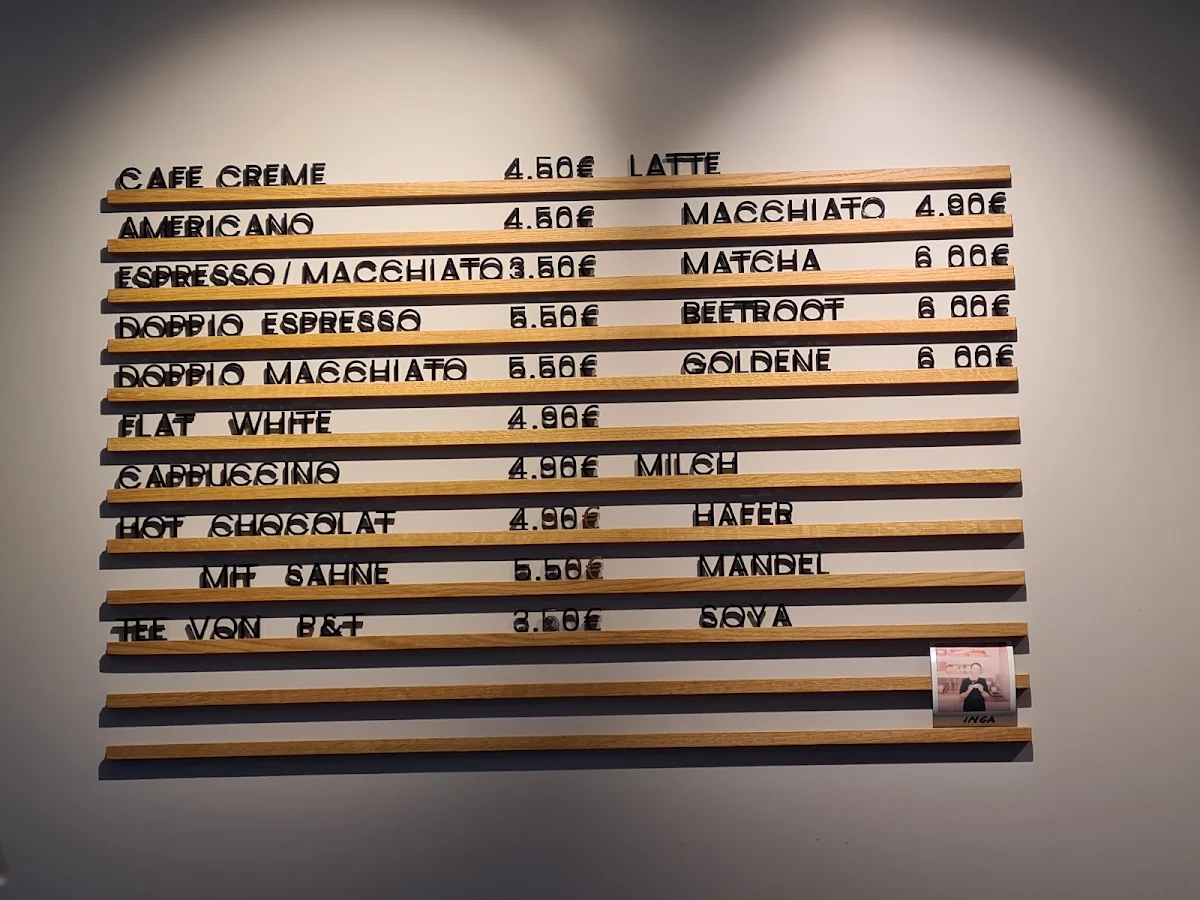 CAFE CREME 4.50€
AMERICANO 4.50€
ESPRESSO / MACCHIATO 3.50€
DOPPIO ESPRESSO 5.50€
DOPPIO MACCHIATO 5.50€
FLAT WHITE 4.90€
CAPPUCCINO 4.90€
HOT CHOCOLAT 4.90€
MIT SAHNE 5.50€
TEE VON P&T 3.50€
LATTE
MACCHIATO 4.90€
MATCHA 6 00€
BEETROOT 6 00€
GOLDENE 6 00€
MILCH
HAFER
MANDEL
SOYA
INGA